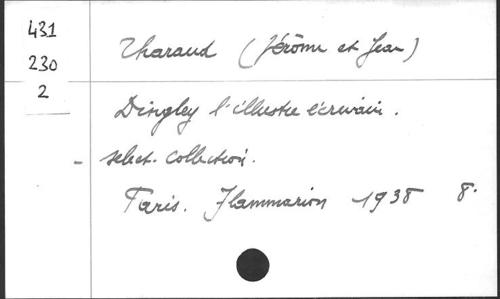 431
230
2
Tharaud (Jérôme et Jean)
Dingley l'illustre écrivain.
- select. collection.
Paris. Flammarion 1938 8.